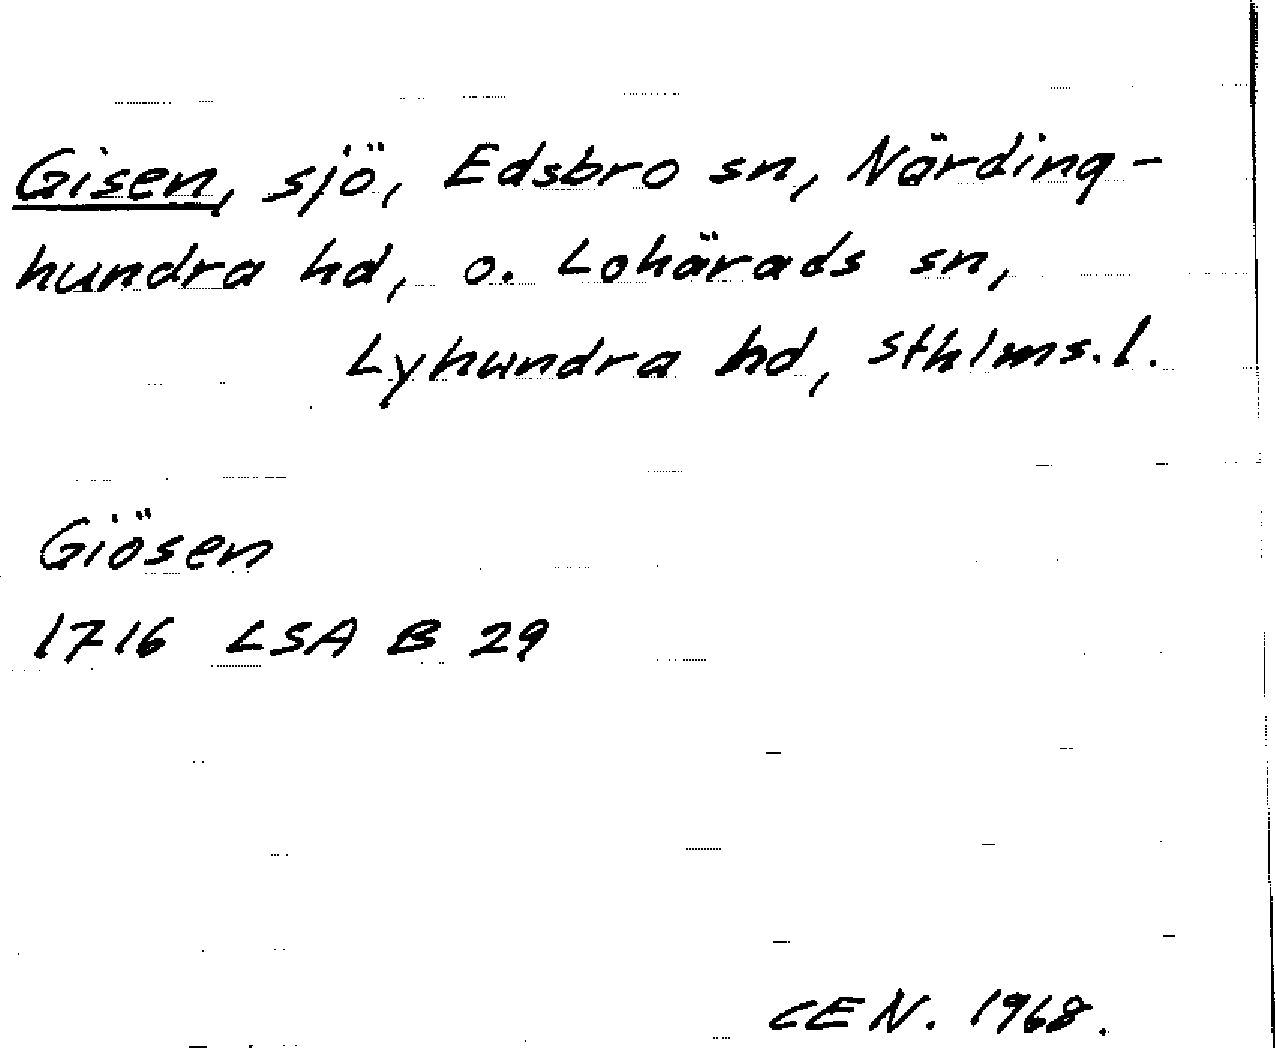 Gisen, sjö, Edsbro sn, Närding-
hundra hd, o. Lohärads sn,
Lyhundra hd, Sthlms.l.
Giösen
1716 LSA B 29
CEN. 1968.